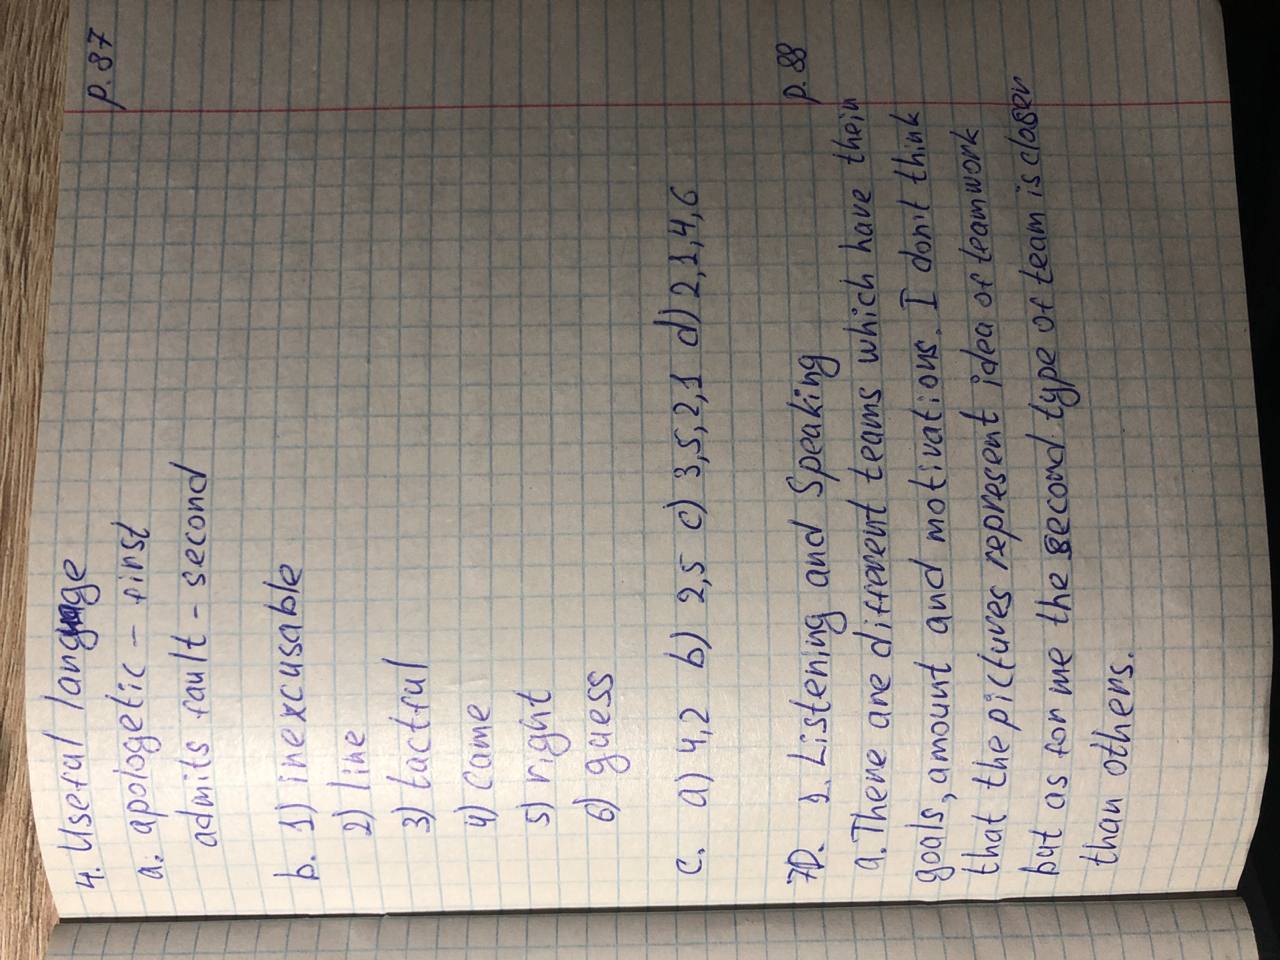 p. 87
4. Useful language
a. apologetic - first
admits fault - second
b. 1) inexcusable
2) line
3) tactful
4) came
5) right
6) guess
c. a) 4,2 b) 2,5 c) 3,5,2,1 d) 2,1,4,6
p. 88
7D. 1. Listening and Speaking
a. There are different teams which have their
goals, amount and motivations. I don't think
that the pictures represent idea of teamwork
but as for me the second type of team is closer
than others.